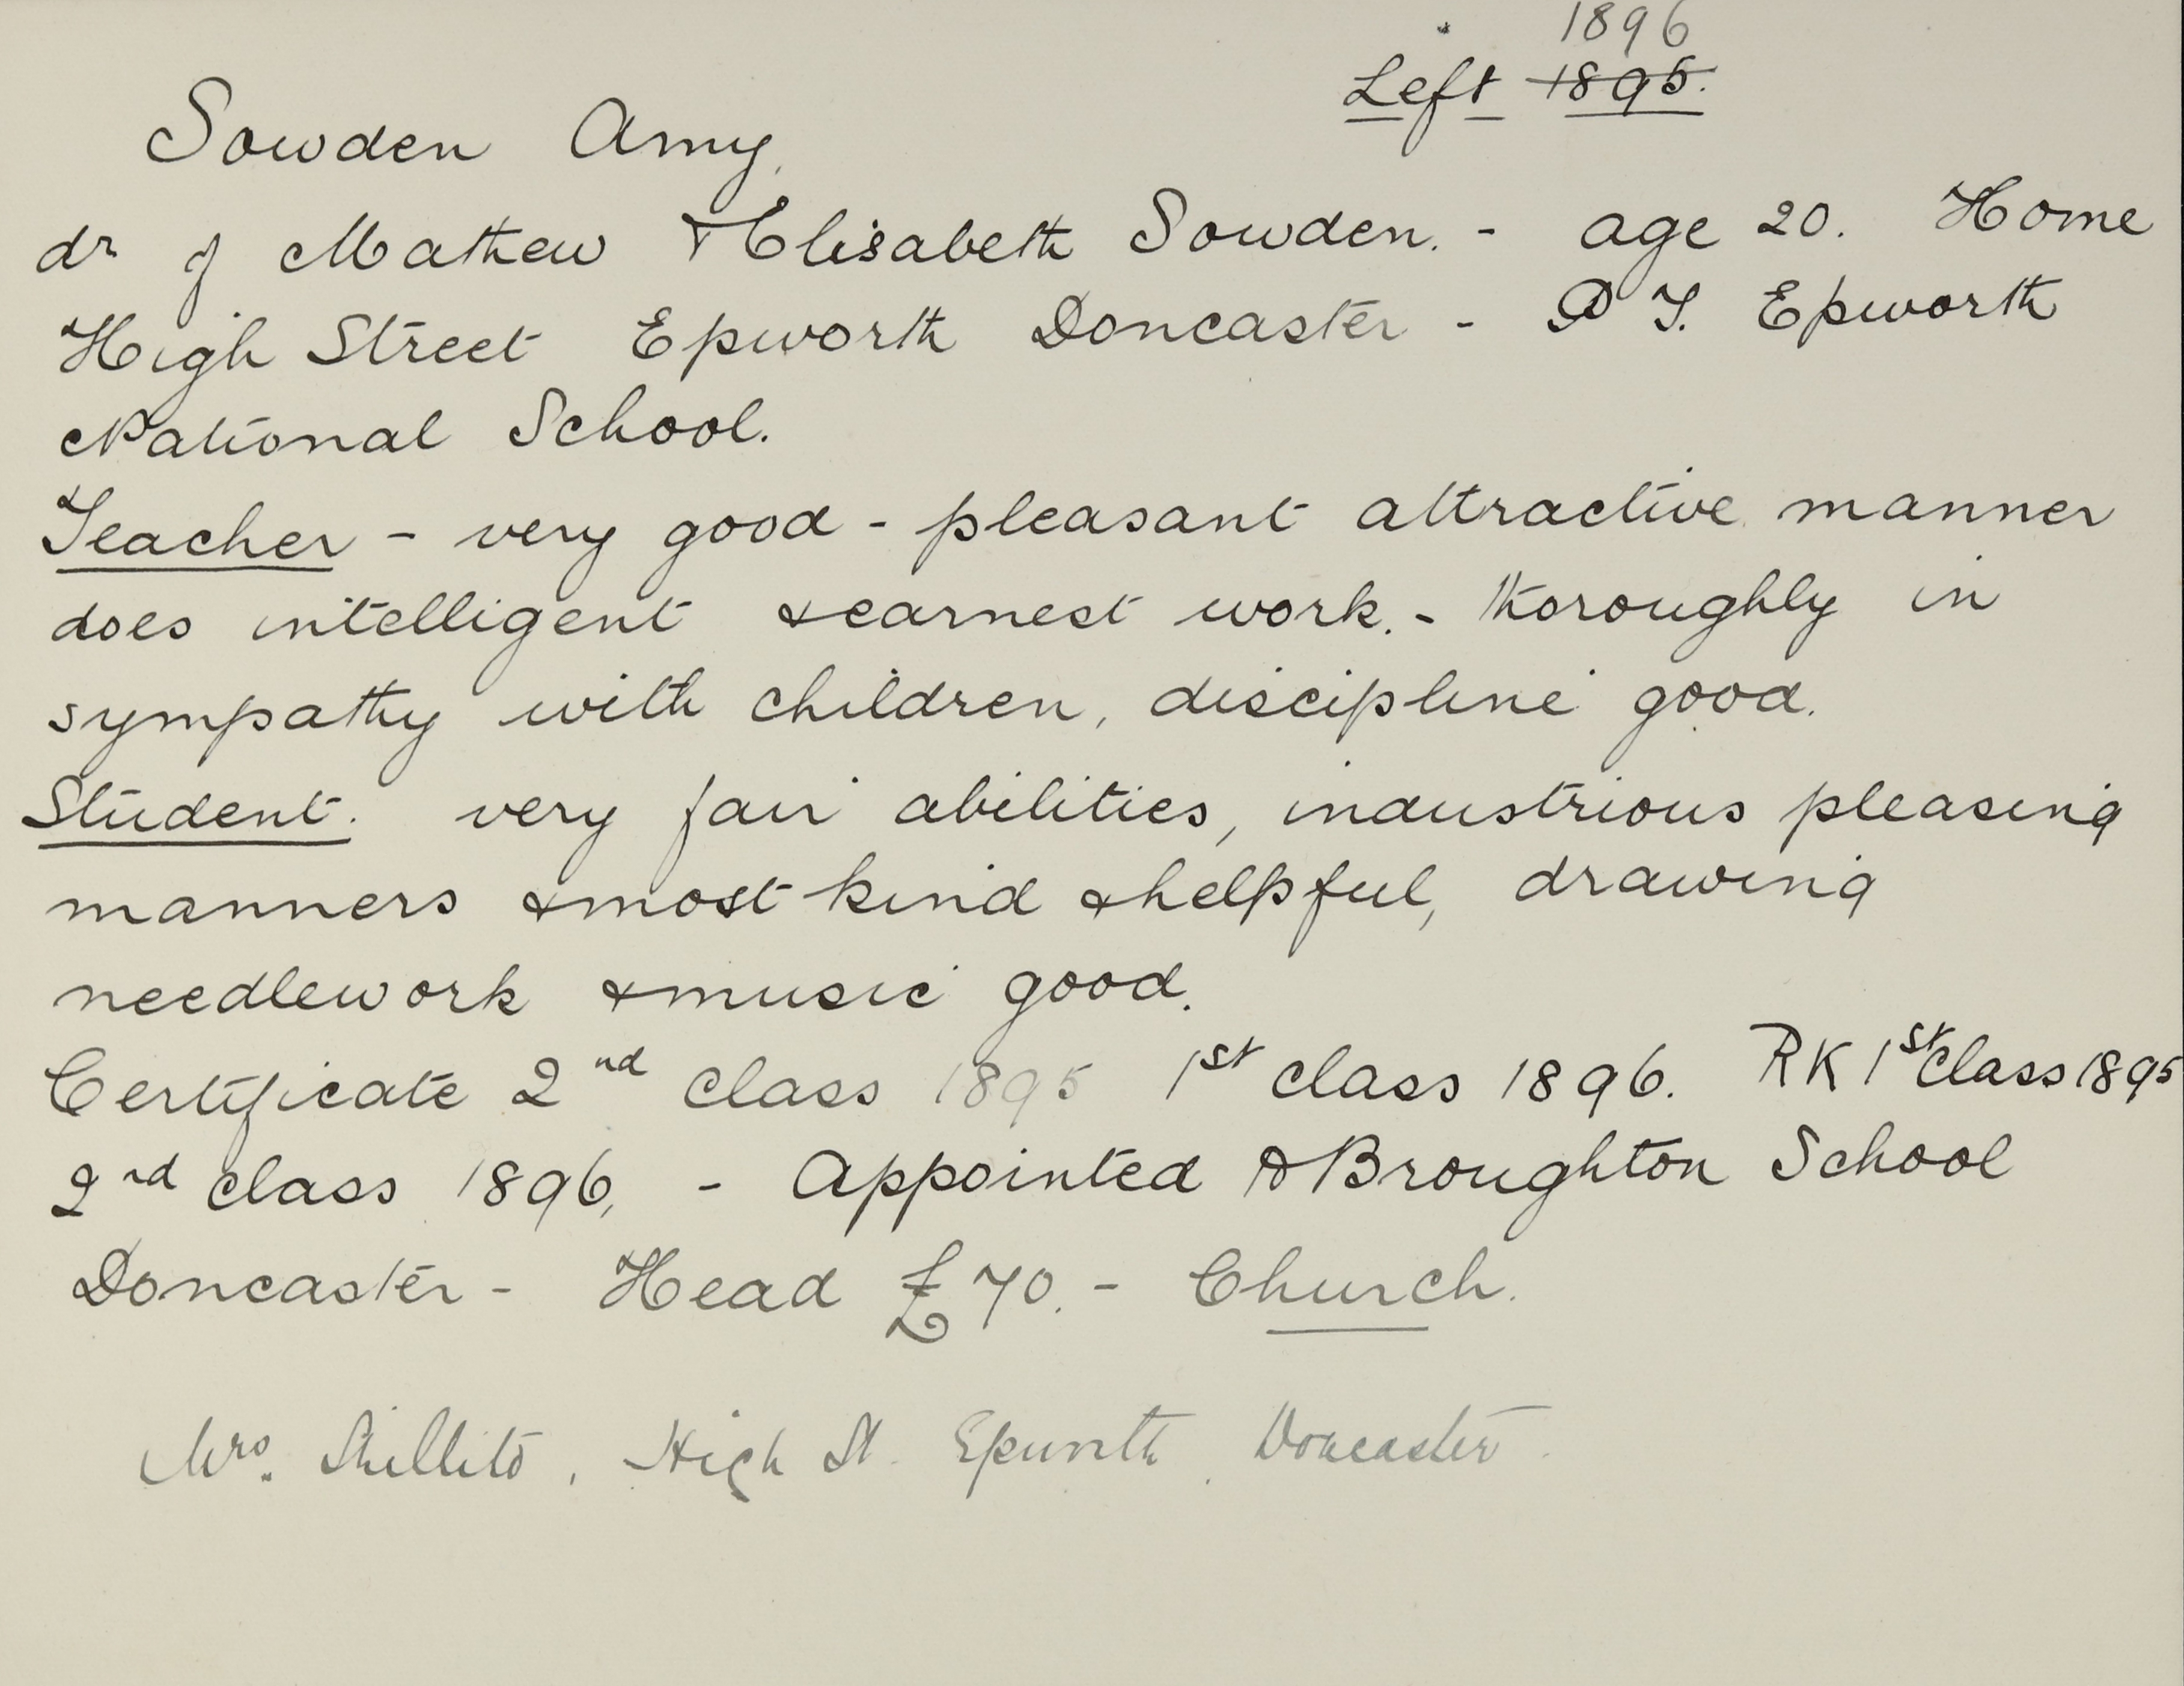 1896
Left 1895.
Sowden Amy.
dr of Mathew & Elisabeth Sowden. - age 20. Home
High Street Epworth Doncaster - P T. Epworth
National School.
Teacher - very good - pleasant attractive manner
does intelligent & earnest work. - thoroughly in
sympathy with children, discipline good.
Student. very fair abilities, industrious pleasing
manners & most kind & helpful, drawing
needlework & music good.
Certificate 2nd class 1895 1st class 1896. RK 1st Class 1895
2nd class 1896. - Appointed Broughton School
Doncaster - Head £70. - Church.
Mrs. Shillito, High St. Epworth. Doncaster.